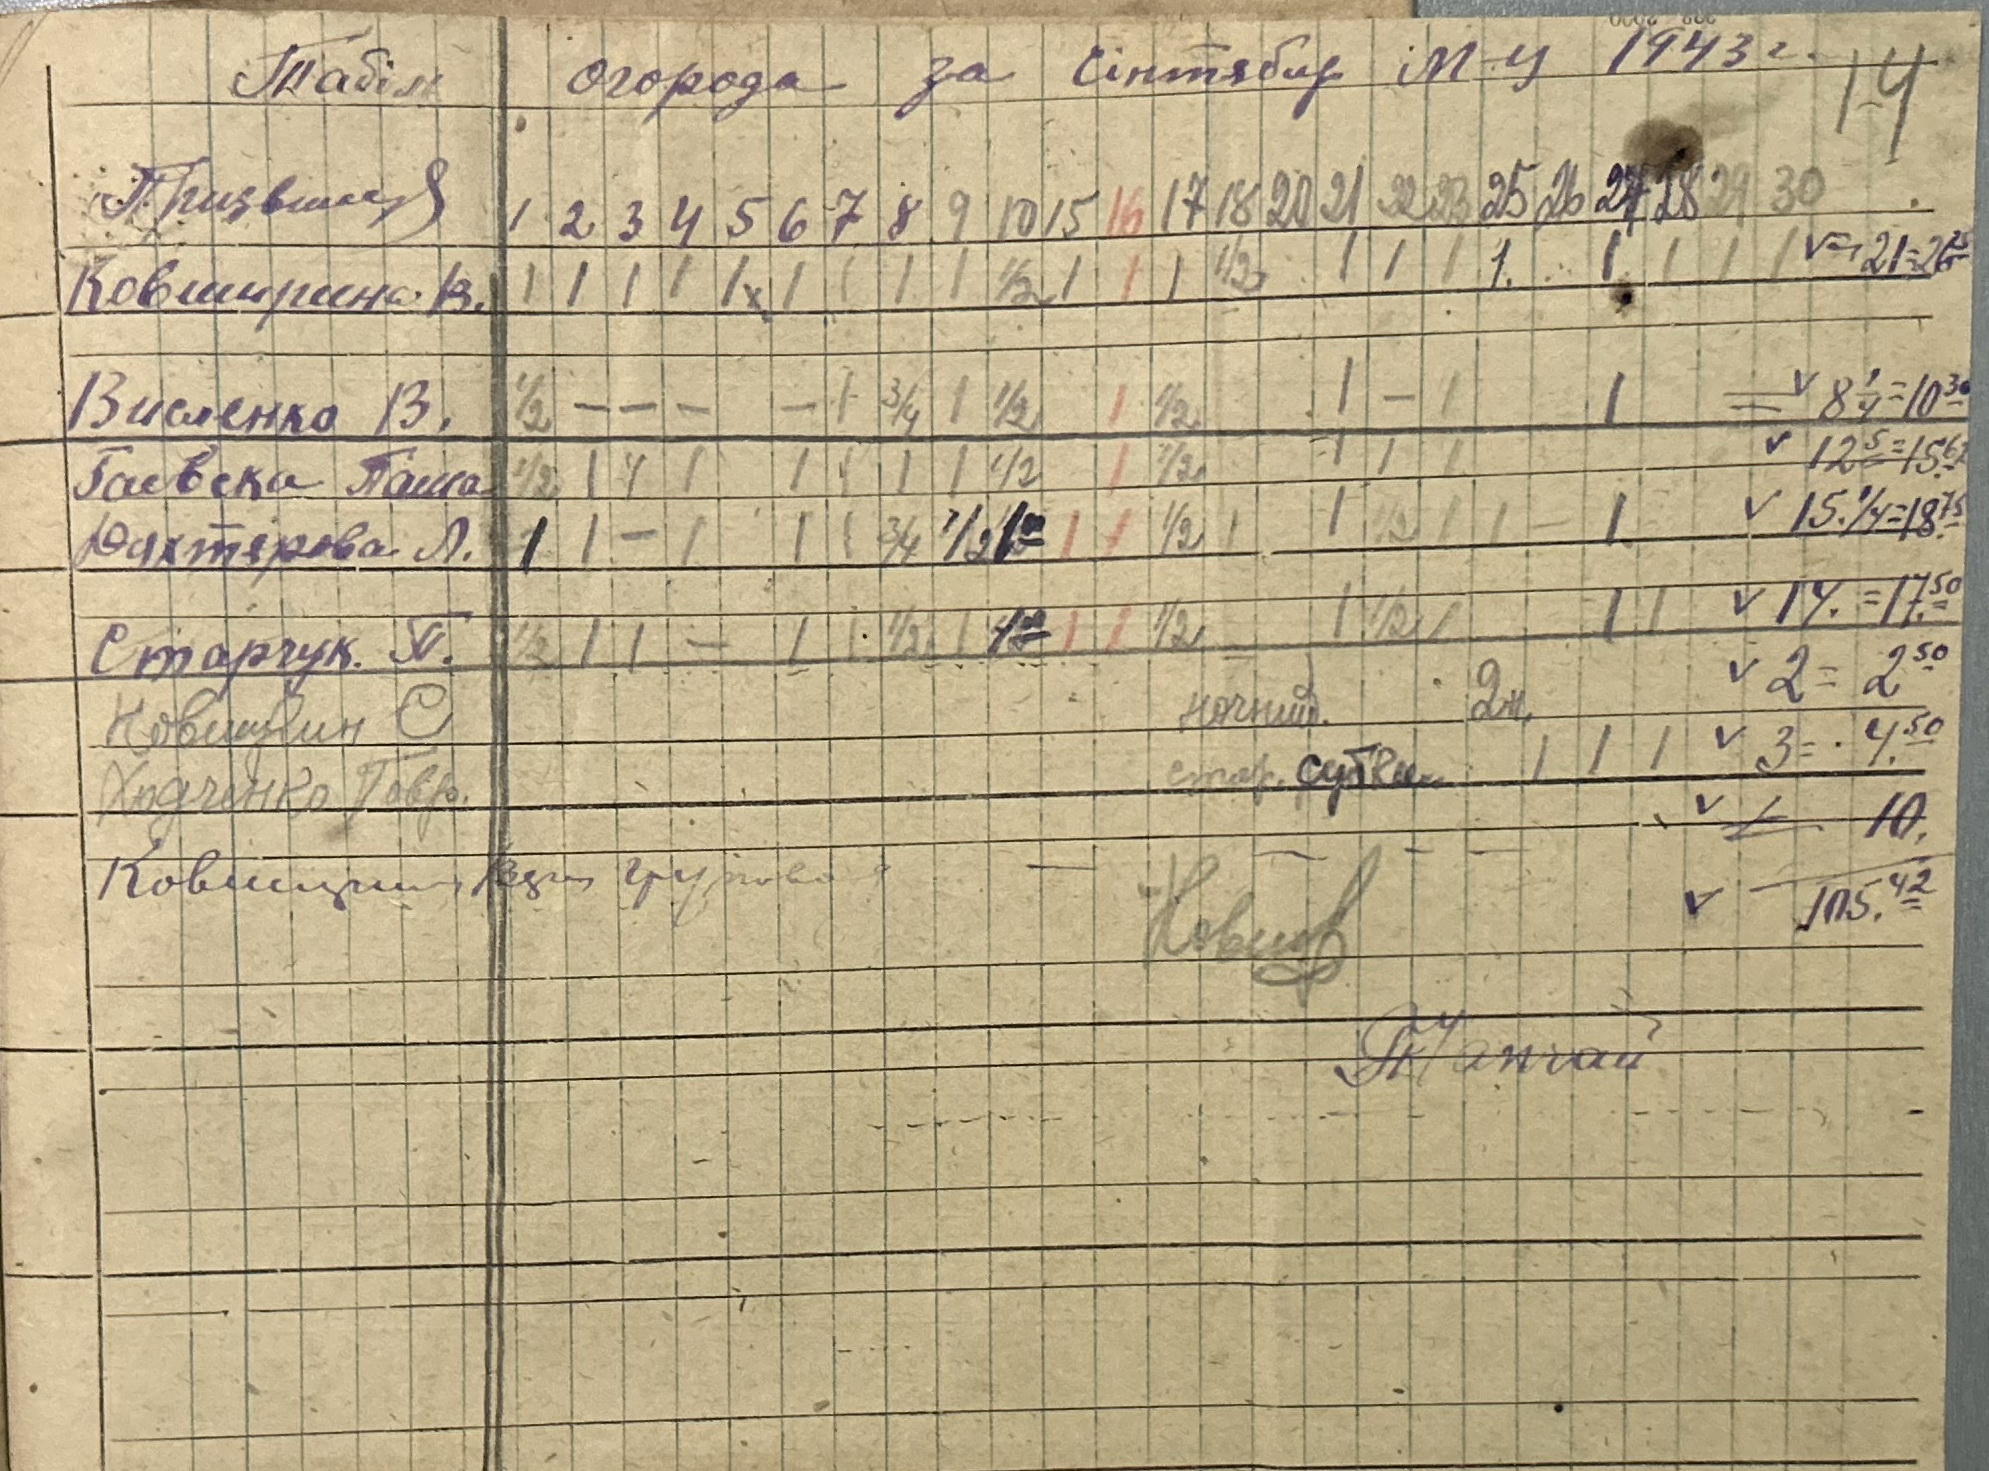 Табіль огорода за сінтябир м-ц 1943 г.
14
Призвище 1 2 3 4 5 6 7 8 9 10 15 16 17 18 20 21 22 23 25 26 27 28 29 30
Ковширина В. 1 1 1 1 1 1 1 1 1 1/2 1 1 1 1/2 1 1 1 1. 1 1 1 1 21=26 25
Висленко В. 1/2 — — — — 1 3/4 1 1/2 1 1/2 1 — 1 1 8 1/4=10 30
Гаевска Паша 1/2 1 1 1 1 1 1 1 1/2 1 1/2 1 1 1 12 5=15.62
Дяхтярова Л. 1 1 — 1 1 1 3/4 1/2 1 1 1/2 1 1 1/2 1 1 — 1 15.1/4=18.75
Старчук. П. 1/2 1 1 — 1 1 1/2 1 1 1 1/2 1 1/2 1 1 1 14.=17.50
С ночний. 2н. 2= 2 50
Ходченко Гавр. стор. сутки 1 1 1 3= 4.50
10.
105.42